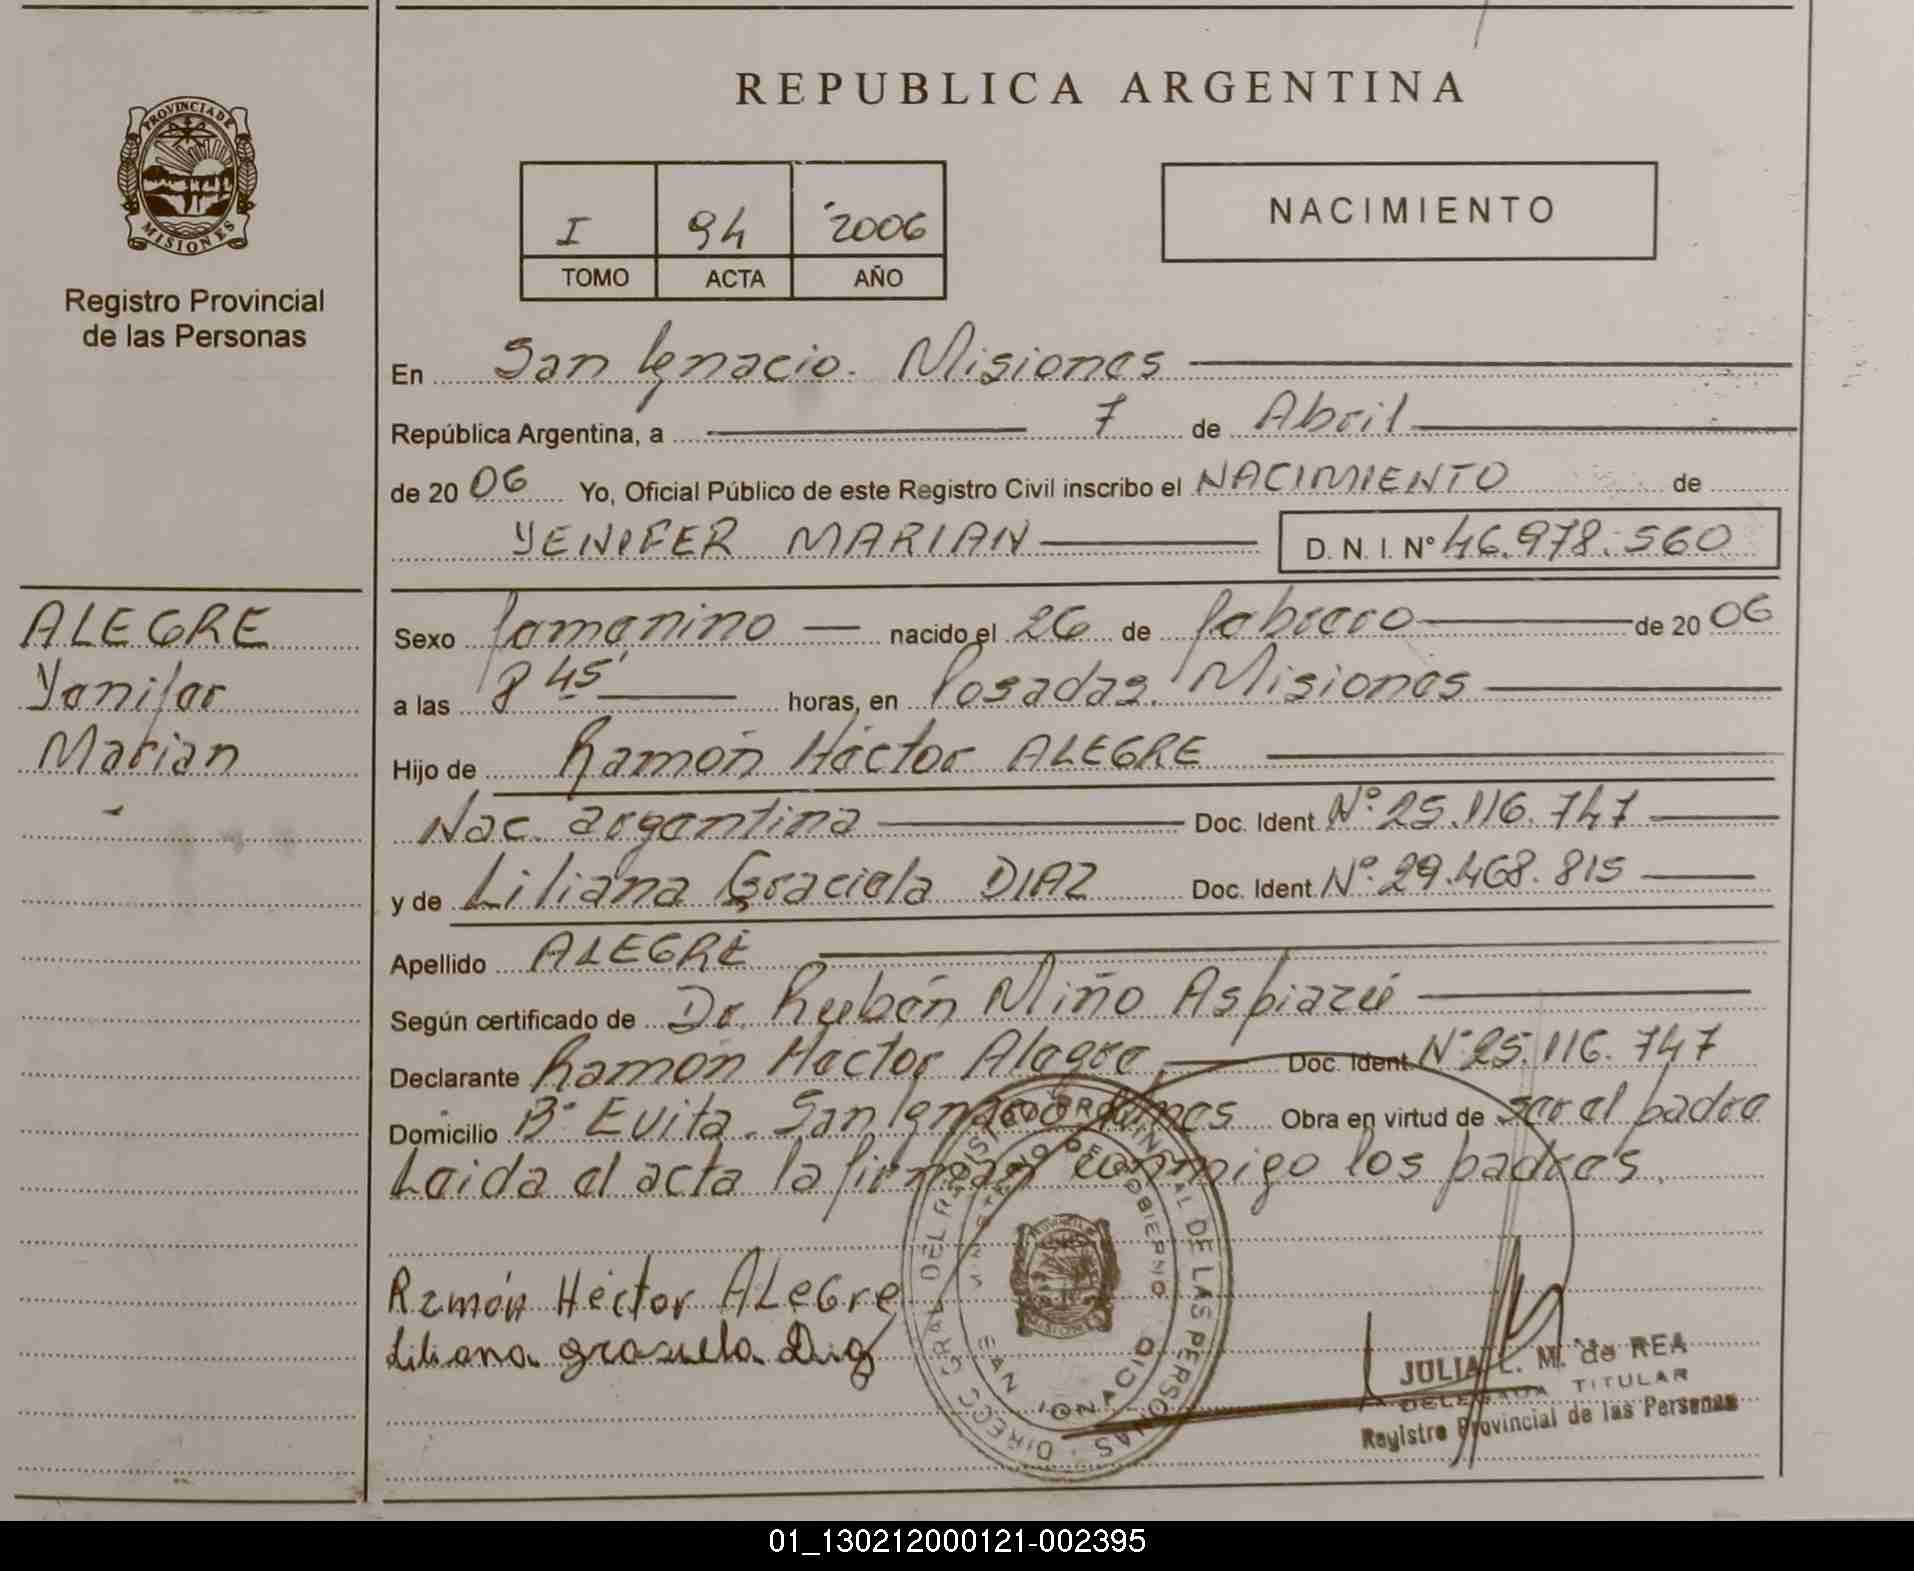 REPUBLICA ARGENTINA
PROVINCIA DE
MISIONES
Registro Provincial
de las Personas
I 94 2006
TOMO ACTA AÑO
NACIMIENTO
En San Ignacio. Misiones
República Argentina, a 7 de Abril
de 2006 Yo, Oficial Público de este Registro Civil inscribo el NACIMIENTO de
YENIFER MARIAN D. N. I. Nº 46.978.560
ALEGRE
Yenifer
Marian
Sexo femenino nacido el 26 de febrero de 2006
a las 8 45' horas, en Posadas. Misiones
Hijo de Ramón Héctor ALEGRE
Nac. argentina Doc. Ident Nº 25.116.747
y de Liliana Graciela DIAZ Doc. Ident Nº 29.468.815
Apellido ALEGRE
Según certificado de Dr. Rubén Miño Aspiazú
Declarante Ramón Hector Alegre Doc. Ident Nº 25.116.747
Domicilio Bº Evita. San Ignacio Obra en virtud de ser el padre
Leida el acta la firman conmigo los padres.
Ramón Héctor ALeGre
Liliana
DIRECC. GRAL DEL REGISTRO PROVINCIAL DE LAS PERSONAS
MINISTERIO DE GOBIERNO
SAN IGNACIO
MISIONES
JULIA L. M. de REA
DELEGADA TITULAR
Registro Provincial de las Personas
01_130212000121-002395